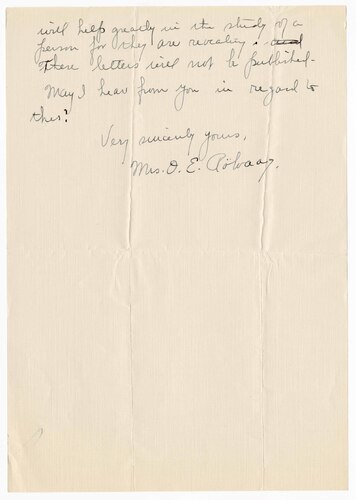 will help greatly in the study of a
person for they are revealing. and
These letters will not be published.
May I hear from you in regard to
this?
Very sincerely yours,
Mrs. O. E.